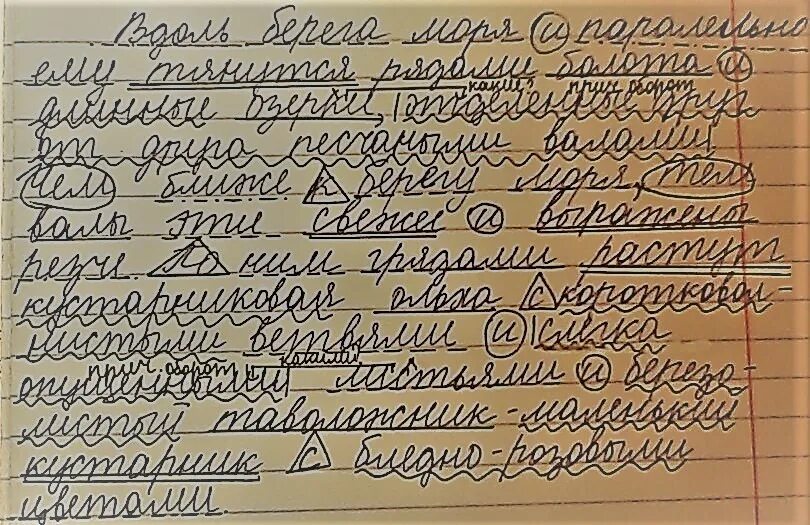 Вдоль берега моря и паралельно
ему тянутся рядами болота и
какие? прич. оборот
длинные озерки, отделенные друг
от друга песчаными валами.
Чем ближе к берегу моря, тем
валы эти свежее и выражены
резче. По ним грядами растут
кустарниковая ольха с коротковол-
нистыми ветвями и слегка
прич. оборот какими?
опушенными листьями и березо-
листый таволожник - маленький
кустарник с бледно-розовыми
цветами.